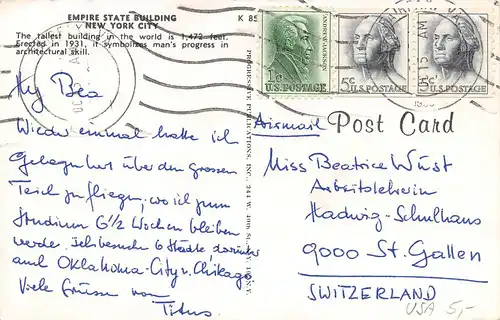 EMPIRE STATE BUILDING
NEW YORK CITY
K 85
The tallest building in the world is 1,472 feet.
Erected in 1931, it symbolizes man's progress in
architectural skill.
My Bea
Wieder einmal hatte ich
Gelegenheit über den grossen
Teich zu fliegen, wo ich zum
Studium 6 1/2 Wochen bleiben
werde. Ich besuche 6 Städte darunter
auch Oklahoma-City u. Chikago
Viele Grüsse von
Titus
PROGRESSIVE PUBLICATIONS, INC., 244 W. 49th St., N.Y.
ANDREW JACKSON
1c
U.S. POSTAGE
5c
U.S. POSTAGE
5c
U.S. POSTAGE
AM
Airmail
Post Card
Miss Beatrice Wüst
Arbeitslehrerin
Hadwig-Schulhaus
9000 St. Gallen
SWITZERLAND
USA 5,-